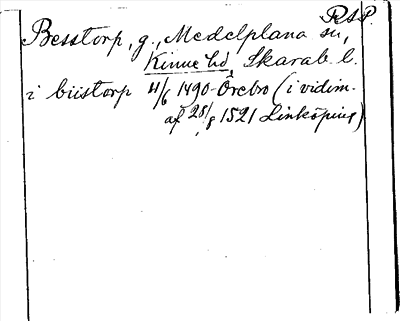 RAP.
Besstorp, g., Medelplana sn,
Kinne hd Skarab. l.
i biistorp 4/6 1490 Örebro (i vidim.
af 28/8 1521 Linköping)